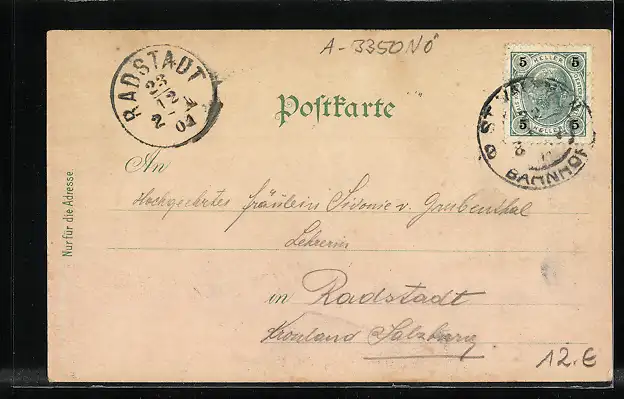 A-3350NÖ
RADSTADT
23/12
2
01
5 HELLER 5
5 HELLER 5
ST. BAHNHOF
Postkarte
An
Hochgeehrtes Fräulein Sidonie v. Grubenthal
Lehrerin
in Radstadt
Kronland Salzburg
Nur für die Adresse.
12.€